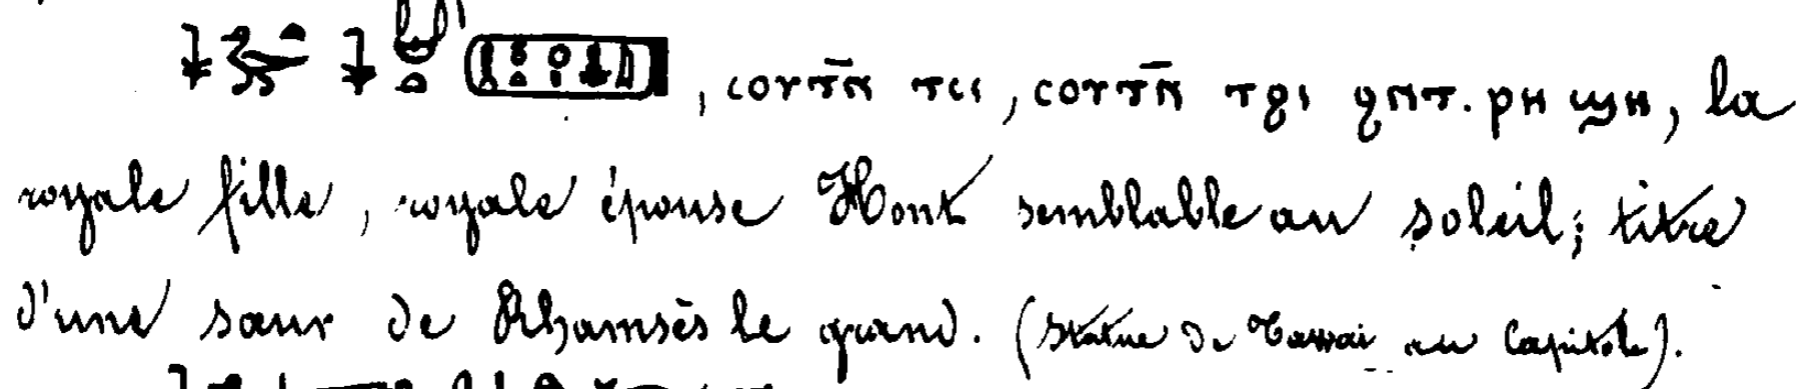 , ⲥⲟⲩⲧⲛ̄ ⲧⲥⲓ, ⲥⲟⲩⲧⲛ̄ ⲧϩⲓ ϩⲛⲧ.ⲣⲏ ϣⲏ, la
royale fille, royale épouse Hont semblable au soleil; titre
d'une sœur de Rhamsès le grand. (Statue de au Capitole).